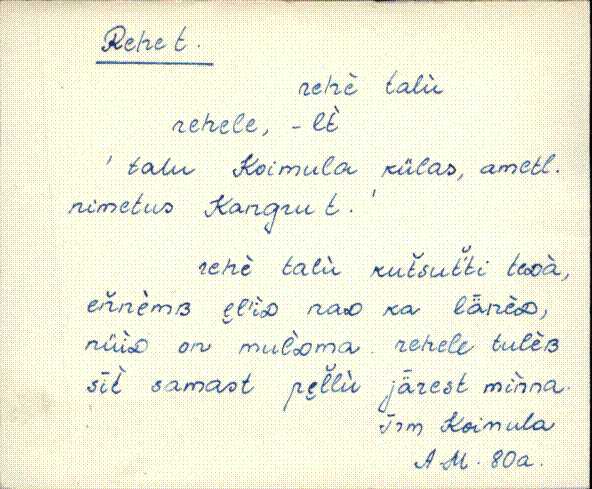 Rehe t.
rehè talù
rehele, -lt̀
' talu Koimula külas, ametl.
nimetus Kangru t. '
rehè talù kut̆sut̆ti tedà,
en̆nèmʙ ȩlìᴅ naᴅ ka lǟnèᴅ,
nüìᴅ on mulᴅ̀oma. rehele tulèʙ
sīt̀ samast pȩl̆lù järest mìnna.
Trm Koimula
A.M. 80a.